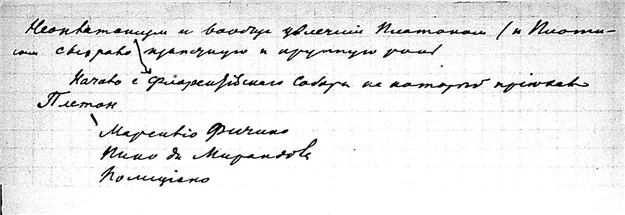 Неоплатонизм и вообще увлечение Платоном (и Плоти-
ном сыграло крупную роль
Начало с Флорентійскаго Собора на который пріехал
Плетон
Марсилио Фичино
Пико де Мирандола
Полициано